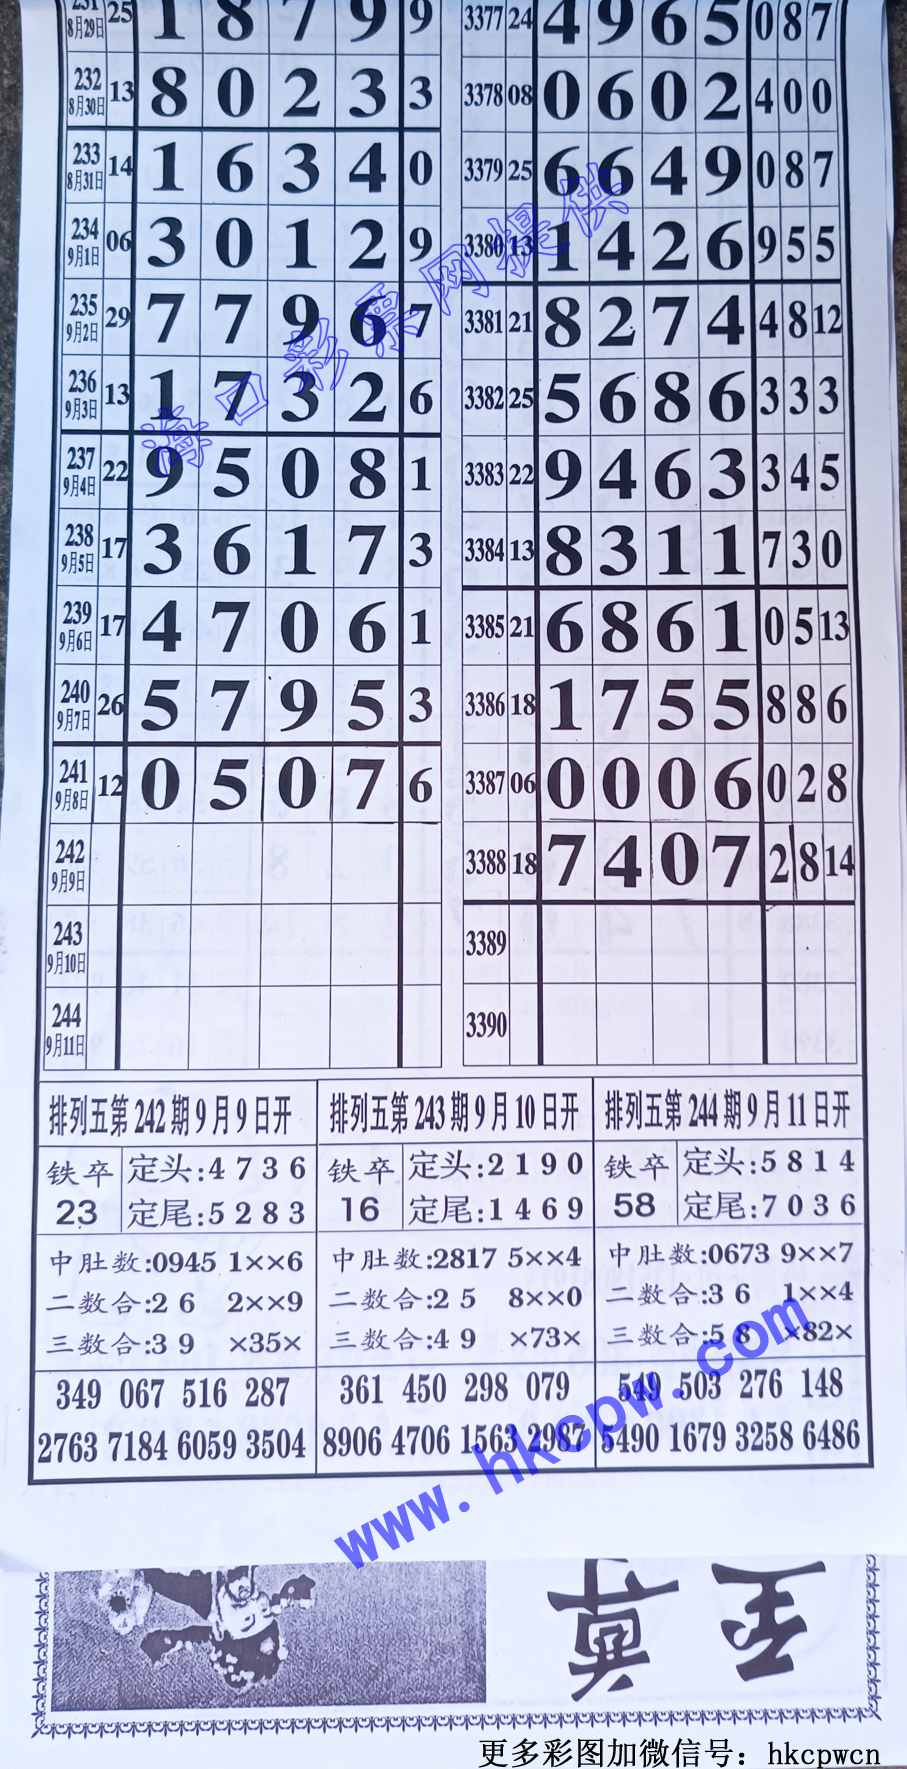 231 8月29日 25 1 8 7 9 9 3377 24 4 9 6 5 0 8 7
232 8月30日 13 8 0 2 3 3 3378 08 0 6 0 2 4 0 0
233 8月31日 14 1 6 3 4 0 3379 25 6 6 4 9 0 8 7
234 9月1日 06 3 0 1 2 9 3380 13 1 4 2 6 9 5 5
235 9月2日 29 7 7 9 6 7 3381 21 8 2 7 4 4 8 12
236 9月3日 13 1 7 3 2 6 3382 25 5 6 8 6 3 3 3
237 9月4日 22 9 5 0 8 1 3383 22 9 4 6 3 3 4 5
238 9月5日 17 3 6 1 7 3 3384 13 8 3 1 1 7 3 0
239 9月6日 17 4 7 0 6 1 3385 21 6 8 6 1 0 5 13
240 9月7日 26 5 7 9 5 3 3386 18 1 7 5 5 8 8 6
241 9月8日 12 0 5 0 7 6 3387 06 0 0 0 6 0 2 8
242 9月9日 3388 18 7 4 0 7 2 8 14
243 9月10日 3389
244 9月11日 3390
海口彩票网提供
排列五第242期9月9日开 排列五第243期9月10日开 排列五第244期9月11日开
铁卒 定头:4 7 3 6 铁卒 定头:2 1 9 0 铁卒 定头:5 8 1 4
23 定尾:5 2 8 3 16 定尾:1 4 6 9 58 定尾:7 0 3 6
中肚数:0945 1××6 中肚数:2817 5××4 中肚数:0673 9××7
二数合:2 6 2××9 二数合:2 5 8××0 二数合:3 6 1××4
三数合:3 9 ×35× 三数合:4 9 ×73× 三数合:5 8 ×82×
349 067 516 287 361 450 298 079 549 503 276 148
2763 7184 6059 3504 8906 4706 1563 2987 5490 1679 3258 6486
www.hkcpw.com
更多彩图加微信号：hkcpwcn